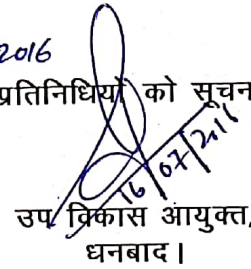 2016
प्रतिनिधियों को सूचन
16/07/2016
उप विकास आयुक्त,
धनबाद।